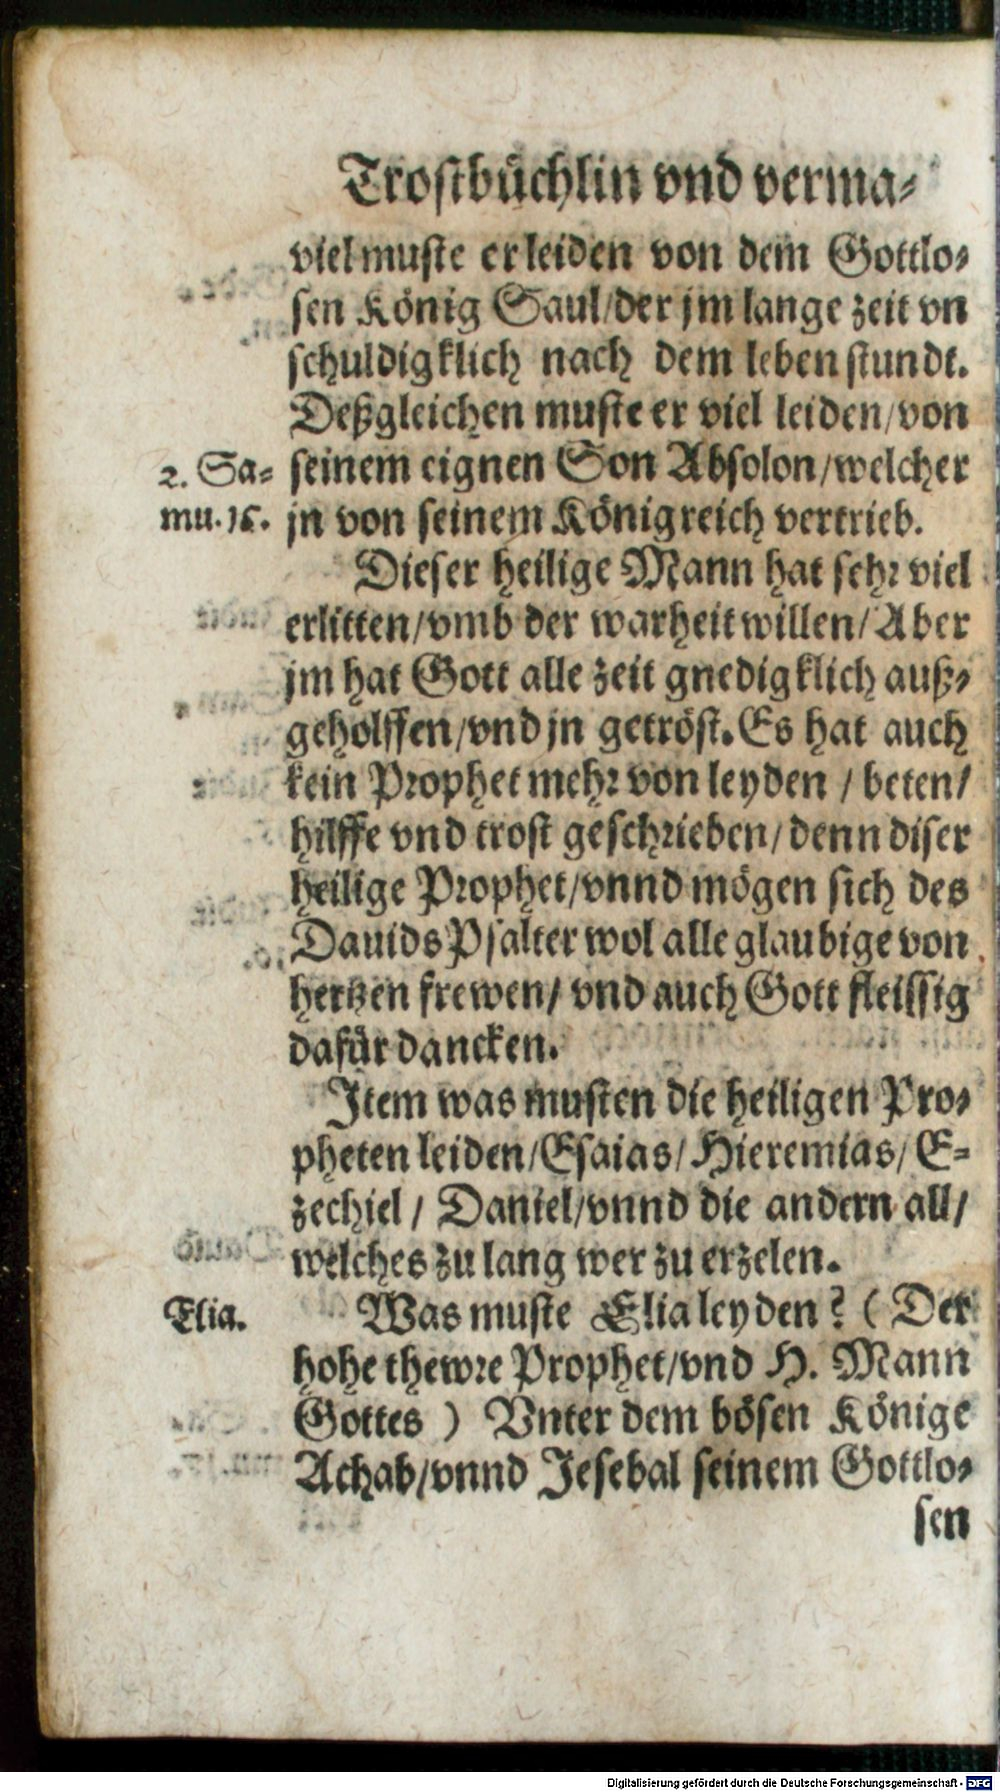 Trostbüchlin vnd verma-
viel muste er leiden von dem Gottlo-
sen König Saul/der jm lange zeit vn
schuldigklich nach dem leben stundt.
Deßgleichen muste er viel leiden/von
2. Sa-
seinem eignen Son Absolon/welcher
mu. 15.
jn von seinem Königreich vertrieb.
Dieser heilige Mann hat sehr viel
erlitten/vmb der warheit willen/Aber
jm hat Gott alle zeit gnedigklich auß-
geholffen/vnd jn getröst. Es hat auch
kein Prophet mehr von leyden / beten/
hilffe vnd trost geschrieben/denn diser
heilige Prophet/vnnd mögen sich des
Dauids Psalter wol alle glaubige von
hertzen frewen/ vnd auch Gott fleissig
dafür dancken.
Item was musten die heiligen Pro-
pheten leiden/Esaias/Hieremias/E-
zechiel / Daniel/vnnd die andern all/
welches zu lang wer zu erzelen.
Elia.
Was muste Elia leyden? (Der
hohe thewre Prophet/vnd H. Mann
Gottes ) Vnter dem bösen Könige
Achab/vnnd Jesebal seinem Gottlo-
sen
Digitalisierung gefördert durch die Deutsche Forschungsgemeinschaft - DFG